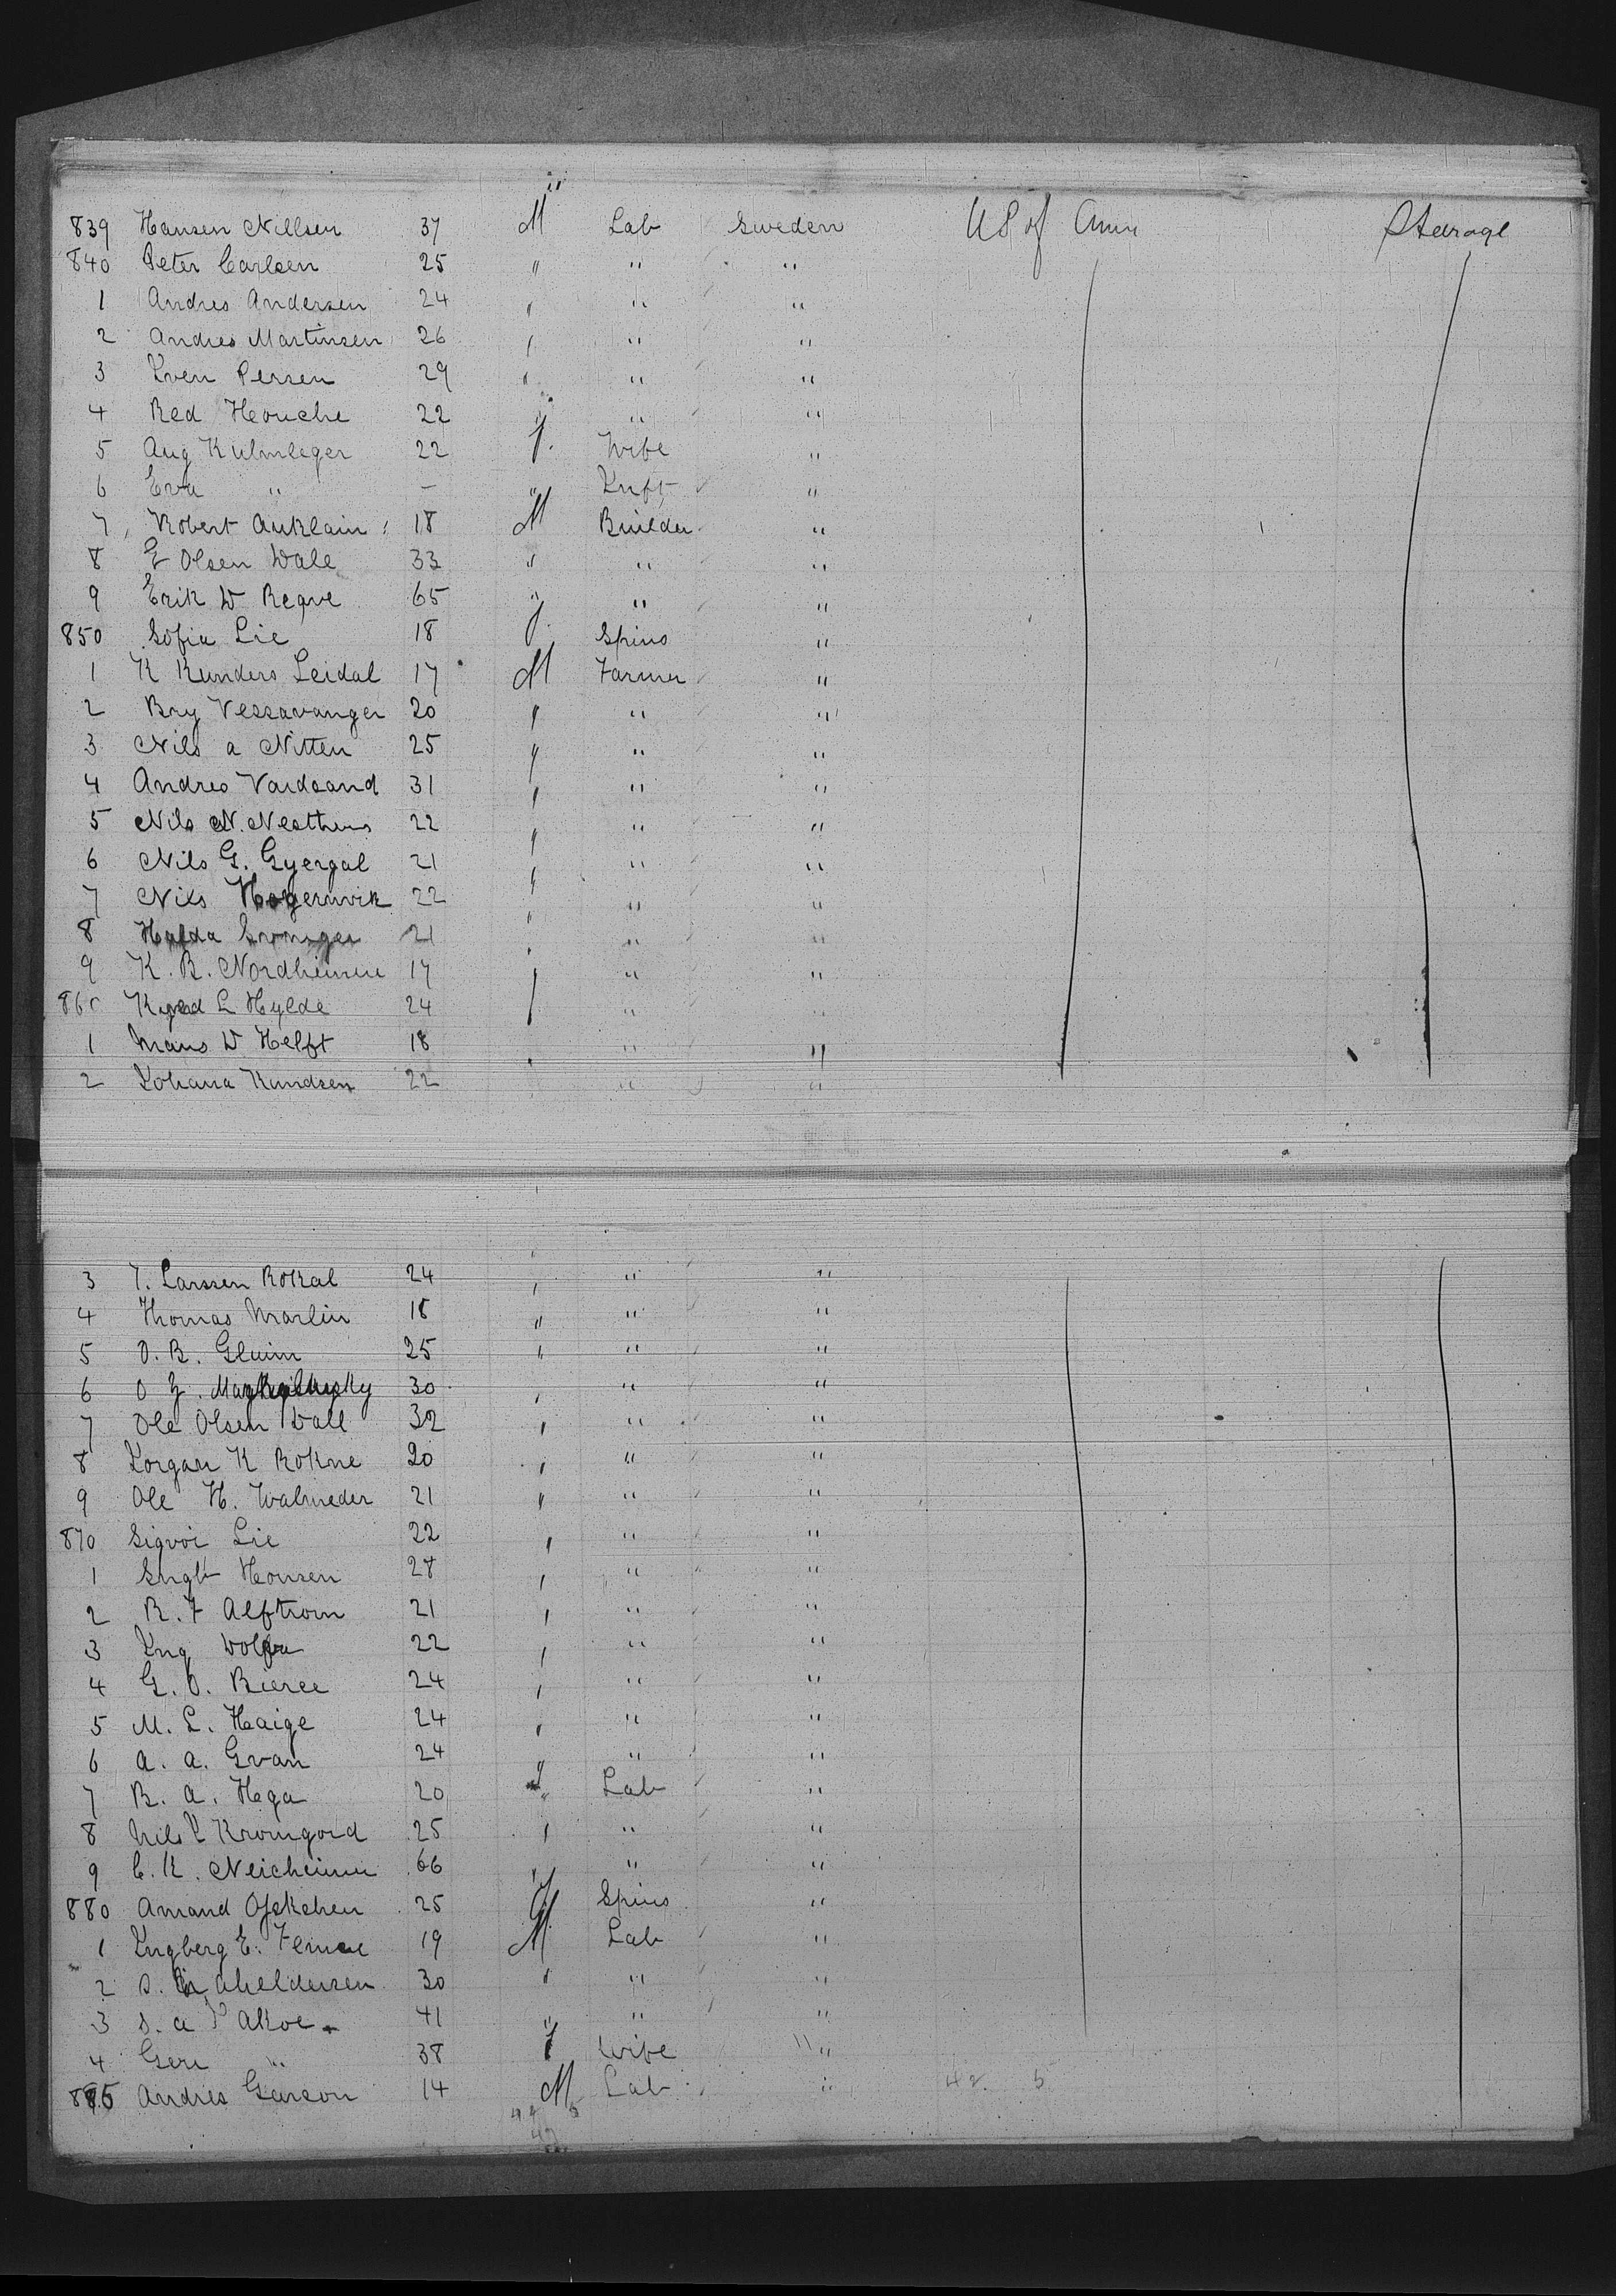 839 Hansen Nillsen 37 M Lab Sweden US of Amer Steerage
840 Peter Carlsen 25 " " "
1 Andres Andersen 24 " " "
2 Andres Martinsen 26 " " "
3 Sven Persen 29 " " "
4 Red Houche 22 " " "
5 Aug Kulmleger 22 f. Wife "
6 Eva " - " "
7 Robert Auklain 18 M Builder "
8 E Olsen Wale 33 " " "
9 Erik W Reqve 65 " " "
850 Sofia Lie 18 f. Spins "
1 K Kunders Leidal 17 M Farmer "
2 Bry Vessavanger 20 " " "
3 Nils a Nitten 25 " " "
4 Andres Vaidsand 31 " " "
5 Nils N. Nesthus 22 " " "
6 Nils G. Gyergal 21 " " "
7 Nils 22 " " "
8 21 " " "
9 K. B. Nordheimue 17 " " "
860 L Hylde 24 " " "
1 Mans W Helft 18 " " "
2 Johana Kundsen 22 " " "
3 T. Larssen Rokal 24 " " "
4 Thomas Marlin 18 " " "
5 O. B. Gluim 25 " " "
6 O 30 " " "
7 Ole Olsen Wall 32 " " "
8 Jorgan K Rokne 20 " " "
9 Ole H. Walmeder 21 " " "
870 Sigvoi Lie 22 " " "
1 Engb Honsen 28 " " "
2 R. F Alftrom 21 " " "
3 Ing 22 " " "
4 G. O. Bieree 24 " " "
5 M. L. Haige 24 " " "
6 A. A. Gvan 24 " " "
7 B. A. Hega 20 " Lab "
8 Nils Kromgord 25 " " "
9 C. K. Neicheimu 66 " " "
880 Amand 25 f Spins "
1 Ingberg E. 19 M Lab "
2 S. Aheldersen 30 " " "
3 S. a 41 " " "
4 Geru " 38 f Wife "
885 Andres Garson 14 M Lab " 42 5
42 5
47